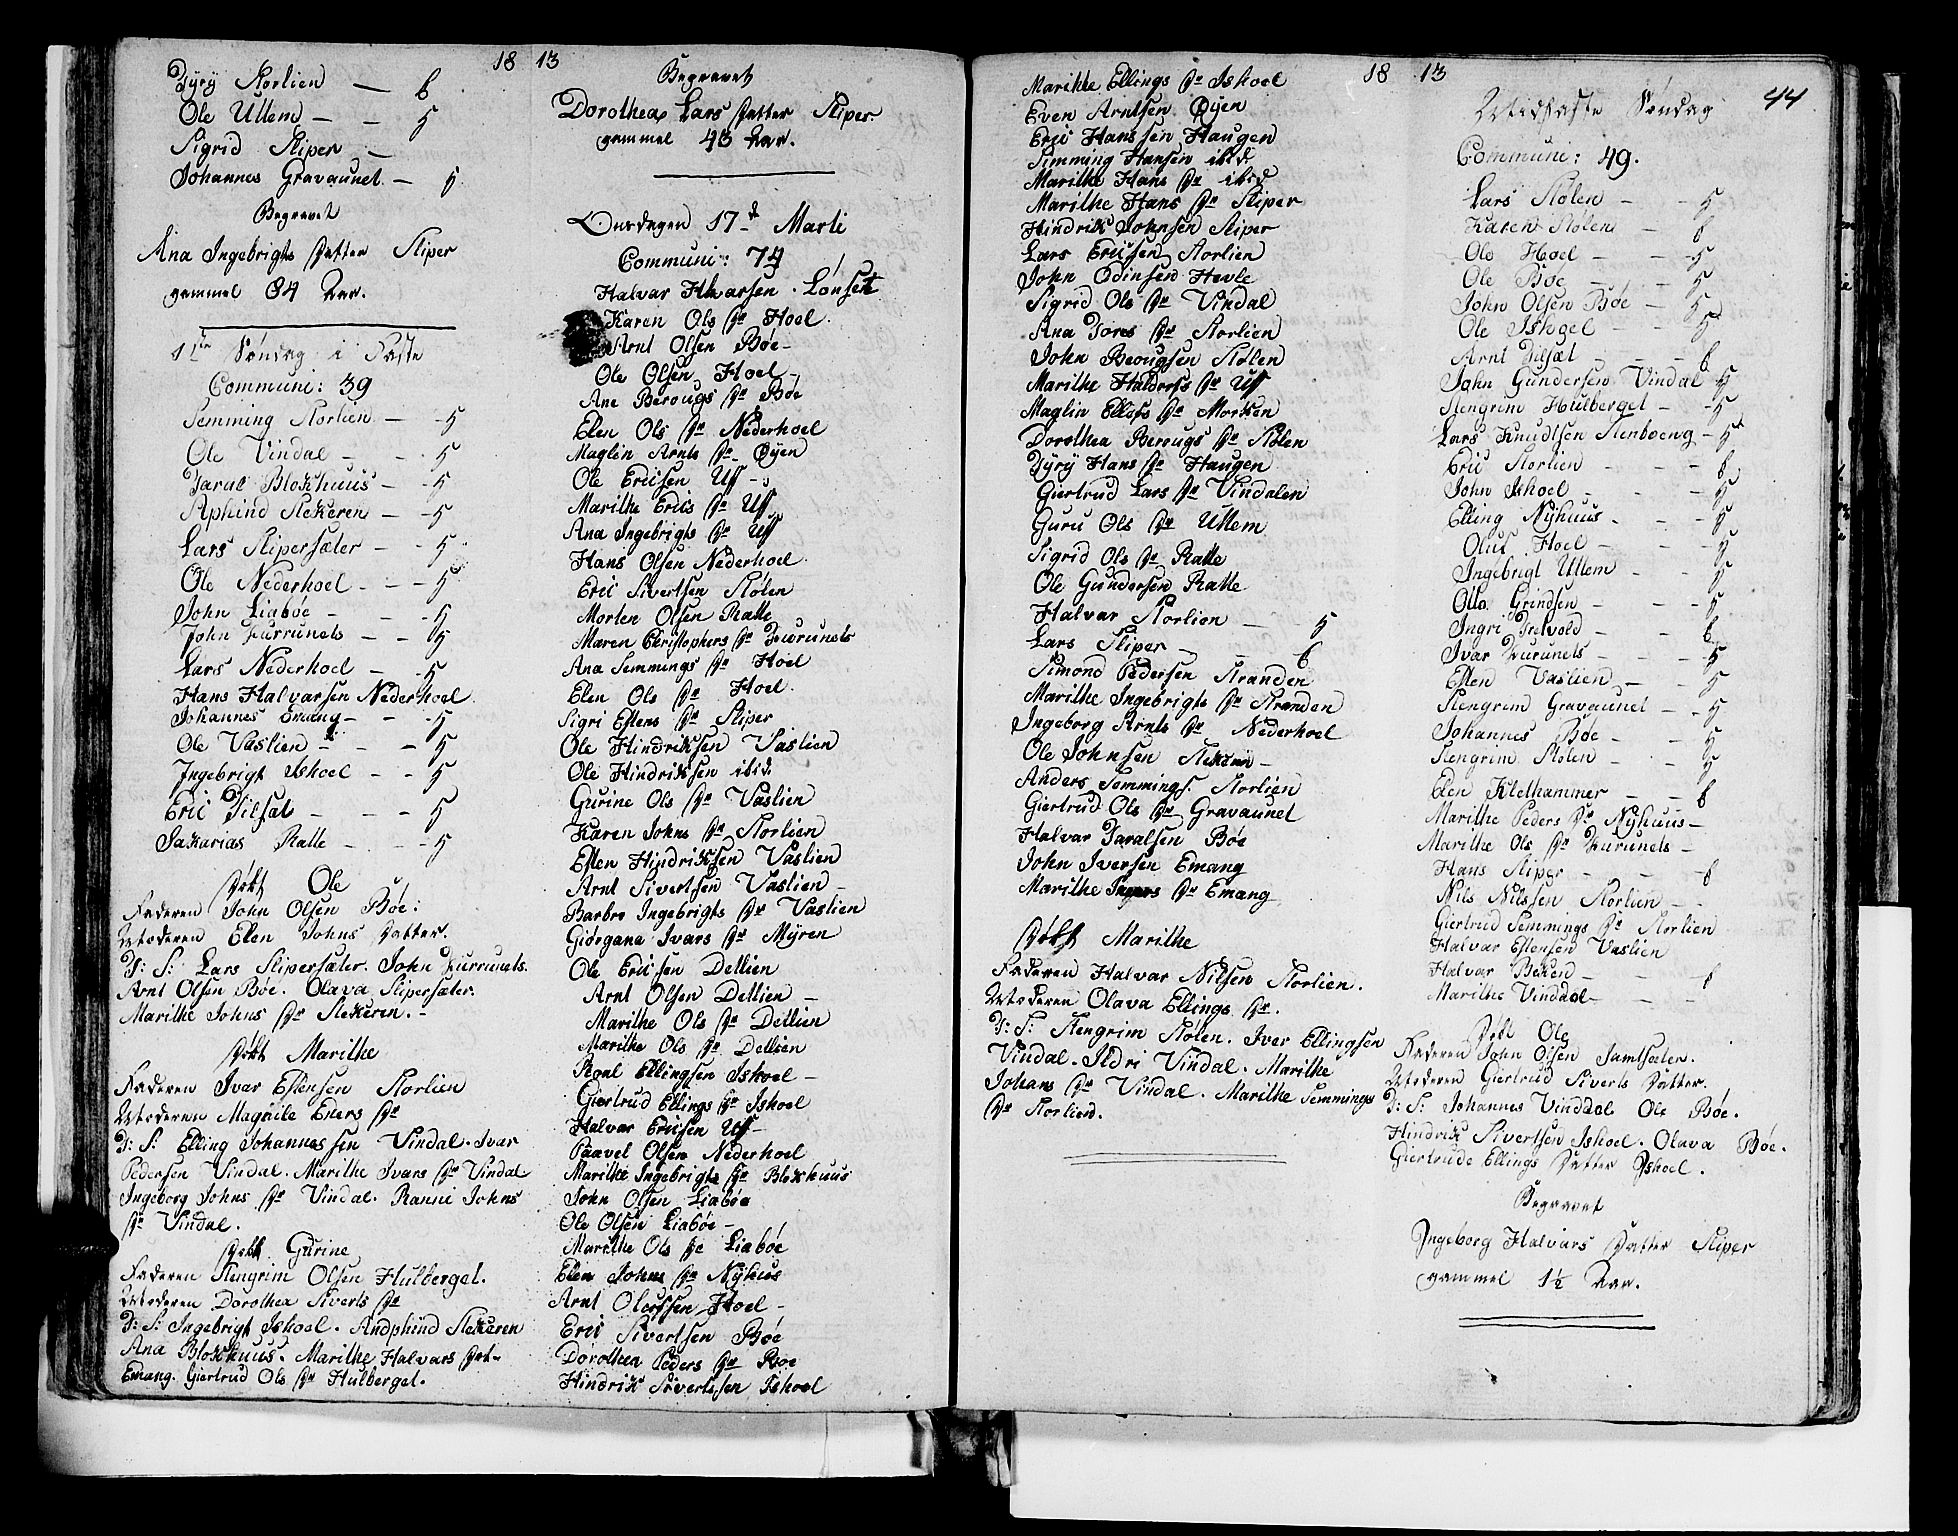 18 13
Tyry Storlien — 6
Ole Uttem — — 5
Sigrid Sliper —
Johannes Gravaunet — 5
Begravet
Ana Ingebrigts Datter Sliper
gammel 84 Aar.
1ste Søndag i Faste
Communi: 39
Semming Storlien — 5
Ole Vindal — — 5
Taral Blokhuus — 5
Aphind Stekeren — 5
Lars Slipersæter — 5
Ole Nederhoel — — 5
John Liabøe — — 5
John Furrunets — — 5
Lars Nederhoel — 5
Hans Halvarsen Nederhoel
Johannes Emang — — 5
Ole Vaslien — — 5
Ingebrigt Ishoel — — 5
Eric Tilset — — — 5
Sakarias Ratte — — 5
Døbt Ole
Faderen John Olsen Bøe:
Moderen Elen Johns Datter.
T: S: Lars Slipersæter. John Furrunets.
Arnt Olsen Bøe. Olava Slipersæter.
Marithe Johns Dr Stekeren. -
Døbt Marithe
Faderen Ivar Estensen Storlien
Moderen Magnile Eners Dr
T: S: Elling Johannessen Vindal. Ivar
Pedersen Vindal. Marithe Ivars Dr Vindal
Ingeborg Johns Dr Vindal. Ranni Johns
Dr Vindal.
Døbt Gurine
Faderen Stengrim Olsen Hulberget.
Moderen Dorothea Siverts Dr
T: S: Ingebrigt Ishoel. Andphind Stekeren
Ana Blokhuus. Marithe Halvars Dat-
Emang. Giertrud Ols Dr Hulberget.
Begravet
Dorothea Lars Datter Sliper.
gammel 43 Aar.
Onsdagen 17d Marti
Communi: 74
Halvar Halvarsen Lønset
Karen Ols Dr Hoel.
Arnt Olsen Bøe-
Ole Olsen Hoel-
Ane Berougs Dr Bøe
Elen Ols Dr Nederhoel
Maglin Arnts Dr Øyen
Ole Ericsen Uff -
Marithe Erics Dr Uff
Ana Ingebrigts Dr Uff
Hans Olsen Nederhoel.
Eric Sivertsen Stølen
Morten Olsen Ratte
Maren Christophers Dr Furunets
Ana Semmings Dr Hoel
Elen Ols Dr Hoel.
Sigri Estens Dr Sliper
Ole Hindriksen Vaslien
Ole Hindriksen ibid.
Gurine Ols Dr Vaslien
Karen Johns Dr Storlien
Esten Hindriksen Vaslien
Arnt Sivertsen Vaslien -
Barbro Ingebrigts Dr Vaslien
Giørgana Ivars Dr Myren
Ole Ericsen Detlien
Arnt Olsen Detlien -
Marithe Ols Dr Detlien
Marithe Ols Dr Detlien
Roal Ellingsen Ishoel -
Giertrud Ellings Dr Ishoel
Halvar Ericsen Uff -
Paavel Olsen Nederhoel
Marithe Ingebrigts Dr Blokhuus
John Olsen Liabøe
Ole Olsen Liabøe -
Marithe Ols Dr Liabøe
Elen Johns Dr Nyhus
Arnt Olufsen Hoel -
Eric Sivertsen Bøe
Dorothea Peders Dr Bøe
Hindrik Sivertsen Ishoel
18 13
44
Marithe Ellings Dr Ishoel
Even Arntsen Øyen
Eric Hanssen Haugen
Semming Hansen ibid.
Marithe Hans Dr ibid
Marithe Hans Dr Sliper
Hindrik Johnsen Sliper
Lars Ericsen Storlien
John Odinsen Hevle
Sigrid Ols Dr Vindal
Ana Tores Dr Storlien
John Berougsen Stølen
Marithe Haldorss Dr Uff
Maglin Ellefs Dr Morken
Dorothea Berougs Dr Stølen
Tyry Hans Dr Haugen
Giertrud Lars Dr Vindalen
Guru Ols Dr Uttem
Sigrid Ols Dr Ratte
Ole Gundersen Ratte
Halvar Storlien — 5
Lars Sliper — — 6
Simond Pedersen Stranden
Marithe Ingebrigts Dr Stranden
Ingeborg Arnts Dr Nederhoel
Ole Johnsen Stekeren -
Anders Semmings. Storlien
Giertrud Ols Dr Gravaunet
Halvar Taralsen Bøe
John Iversen Emang
Marithe Dr Emang
Døbt Marithe
Faderen Halvar Nilsen Storlien.
Moderen Olava Ellings Dr.
T: S: Stengrim Stølen. Iver Ellingsen
Vindal. Sidri Vindal. Marithe
Johans Dr Vindal. Marithe Semmings
Dr Storlien.
Midfaste Søndag
Communi: 49.
Lars Stølen — — 5
Karen Stølen — 6
Ole Hoel — — 5
Ole Bøe — — 5
John Olsen Bøe — 5
Ole Ishoel — — 5
Arnt Tilsæt — — — 6
John Gundersen Vindal 5
Stengrim Hulberget — 5
Lars Knudtsen Stenboeng — 5
Eric Storlien — — — 6
John Ishoel — — — 5
Elling Nyhuus — — 5
Oluf Hoel — — — 5
Ingebrigt Uttem — — 5
Otto Grindsen — — — 5
Ingri Tretvold — — 6
Ivar Furunets — — 5
Esten Vaslien — — 5
Stengrim Gravaunet — — 5
Johannes Bøe — — 5
Stengrim Stølen — — 5
Elen Klethammer — — 6
Marithe Peders Dr Nyhuus —
Marithe Ols Dr Furunets —
Hans Sliper — — — 6
Nils Nilssen Storlien — -
Giertrud Semmings Dr Storlien
Halvar Estensen Vaslien
Halvar Beken — — — 6
Marithe Vinddal — — -
Døbt Ole
Faderen John Olsen Jamtsæter.
Moderen Giertrud Siverts Datter.
T: S: Johannes Vinddal Ole Bøe.
Hindrik Sivertsen Ishoel. Olava Bøe.
Giertrude Ellings Datter Ishoel.
Begravet
Ingeborg Halvars Datter Sliper
gammel 1½ Aar.